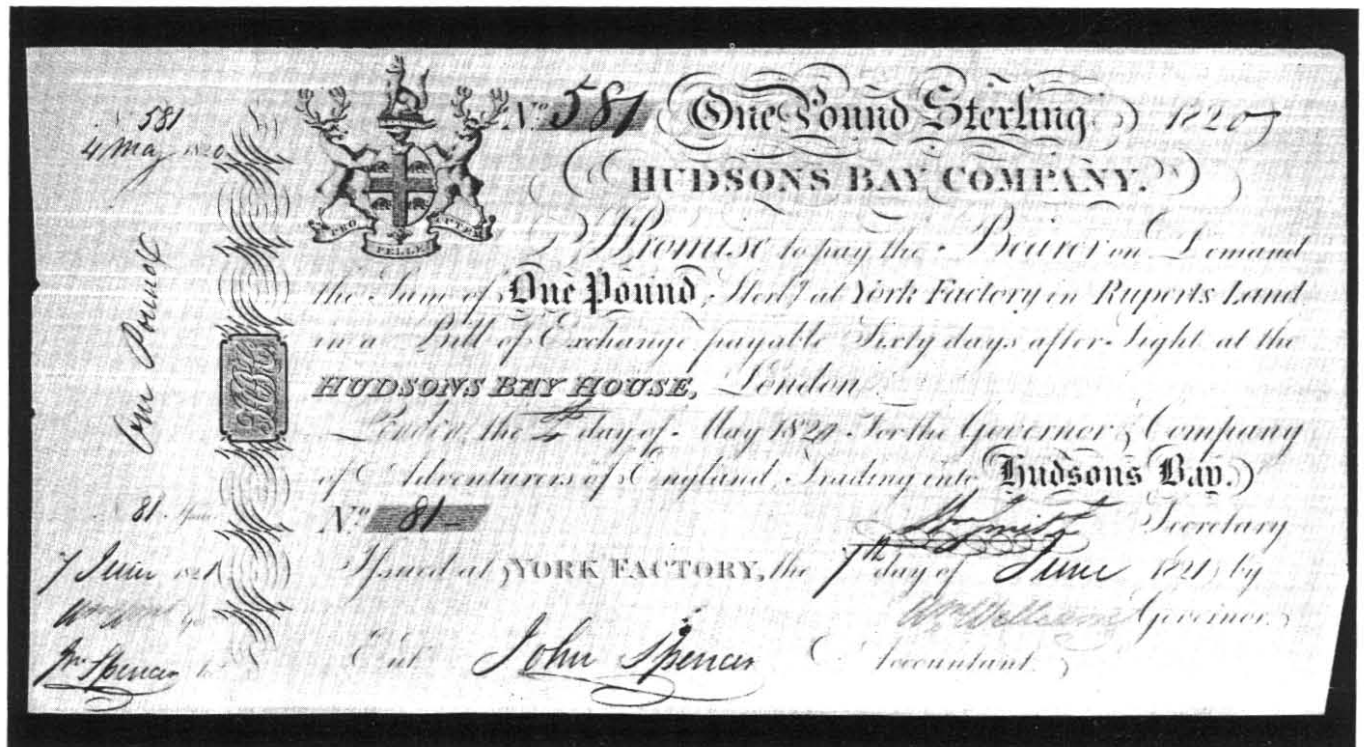 581
4 May 1820
One Pound
81
7 June 1821
Jn Spencer
No 581 One Pound Sterling 1820
HUDSONS BAY COMPANY.
PRO PELLE CUTEM
I Promise to pay the Bearer on Demand
the Sum of One Pound, Sterlg at York Factory in Ruperts Land
in a Bill of Exchange payable Sixty days after Sight at the
HUDSONS BAY HOUSE, London
London, the 4 day of May 1820 For the Governor & Company
of Adventurers of England Trading into Hudsons Bay.
HBC
No 81 Wm Smith Secretary
Issued at YORK FACTORY, the 7th day of June 1821 by
Wm Williams Governor.
Ent John Spencer Accountant.